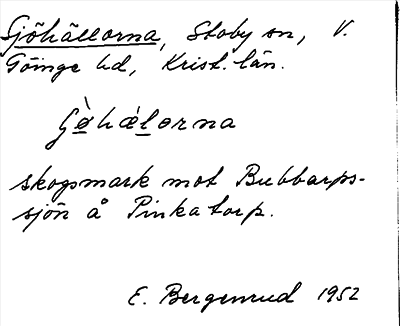 Sjöhällorna, Stoby sn, V.
Göinge hd, Krist. län.
Gø̀hæ̀lorna
skogsmark mot Bubbarps-
sjön å Pinkatorp.
E. Bergenrud 1952